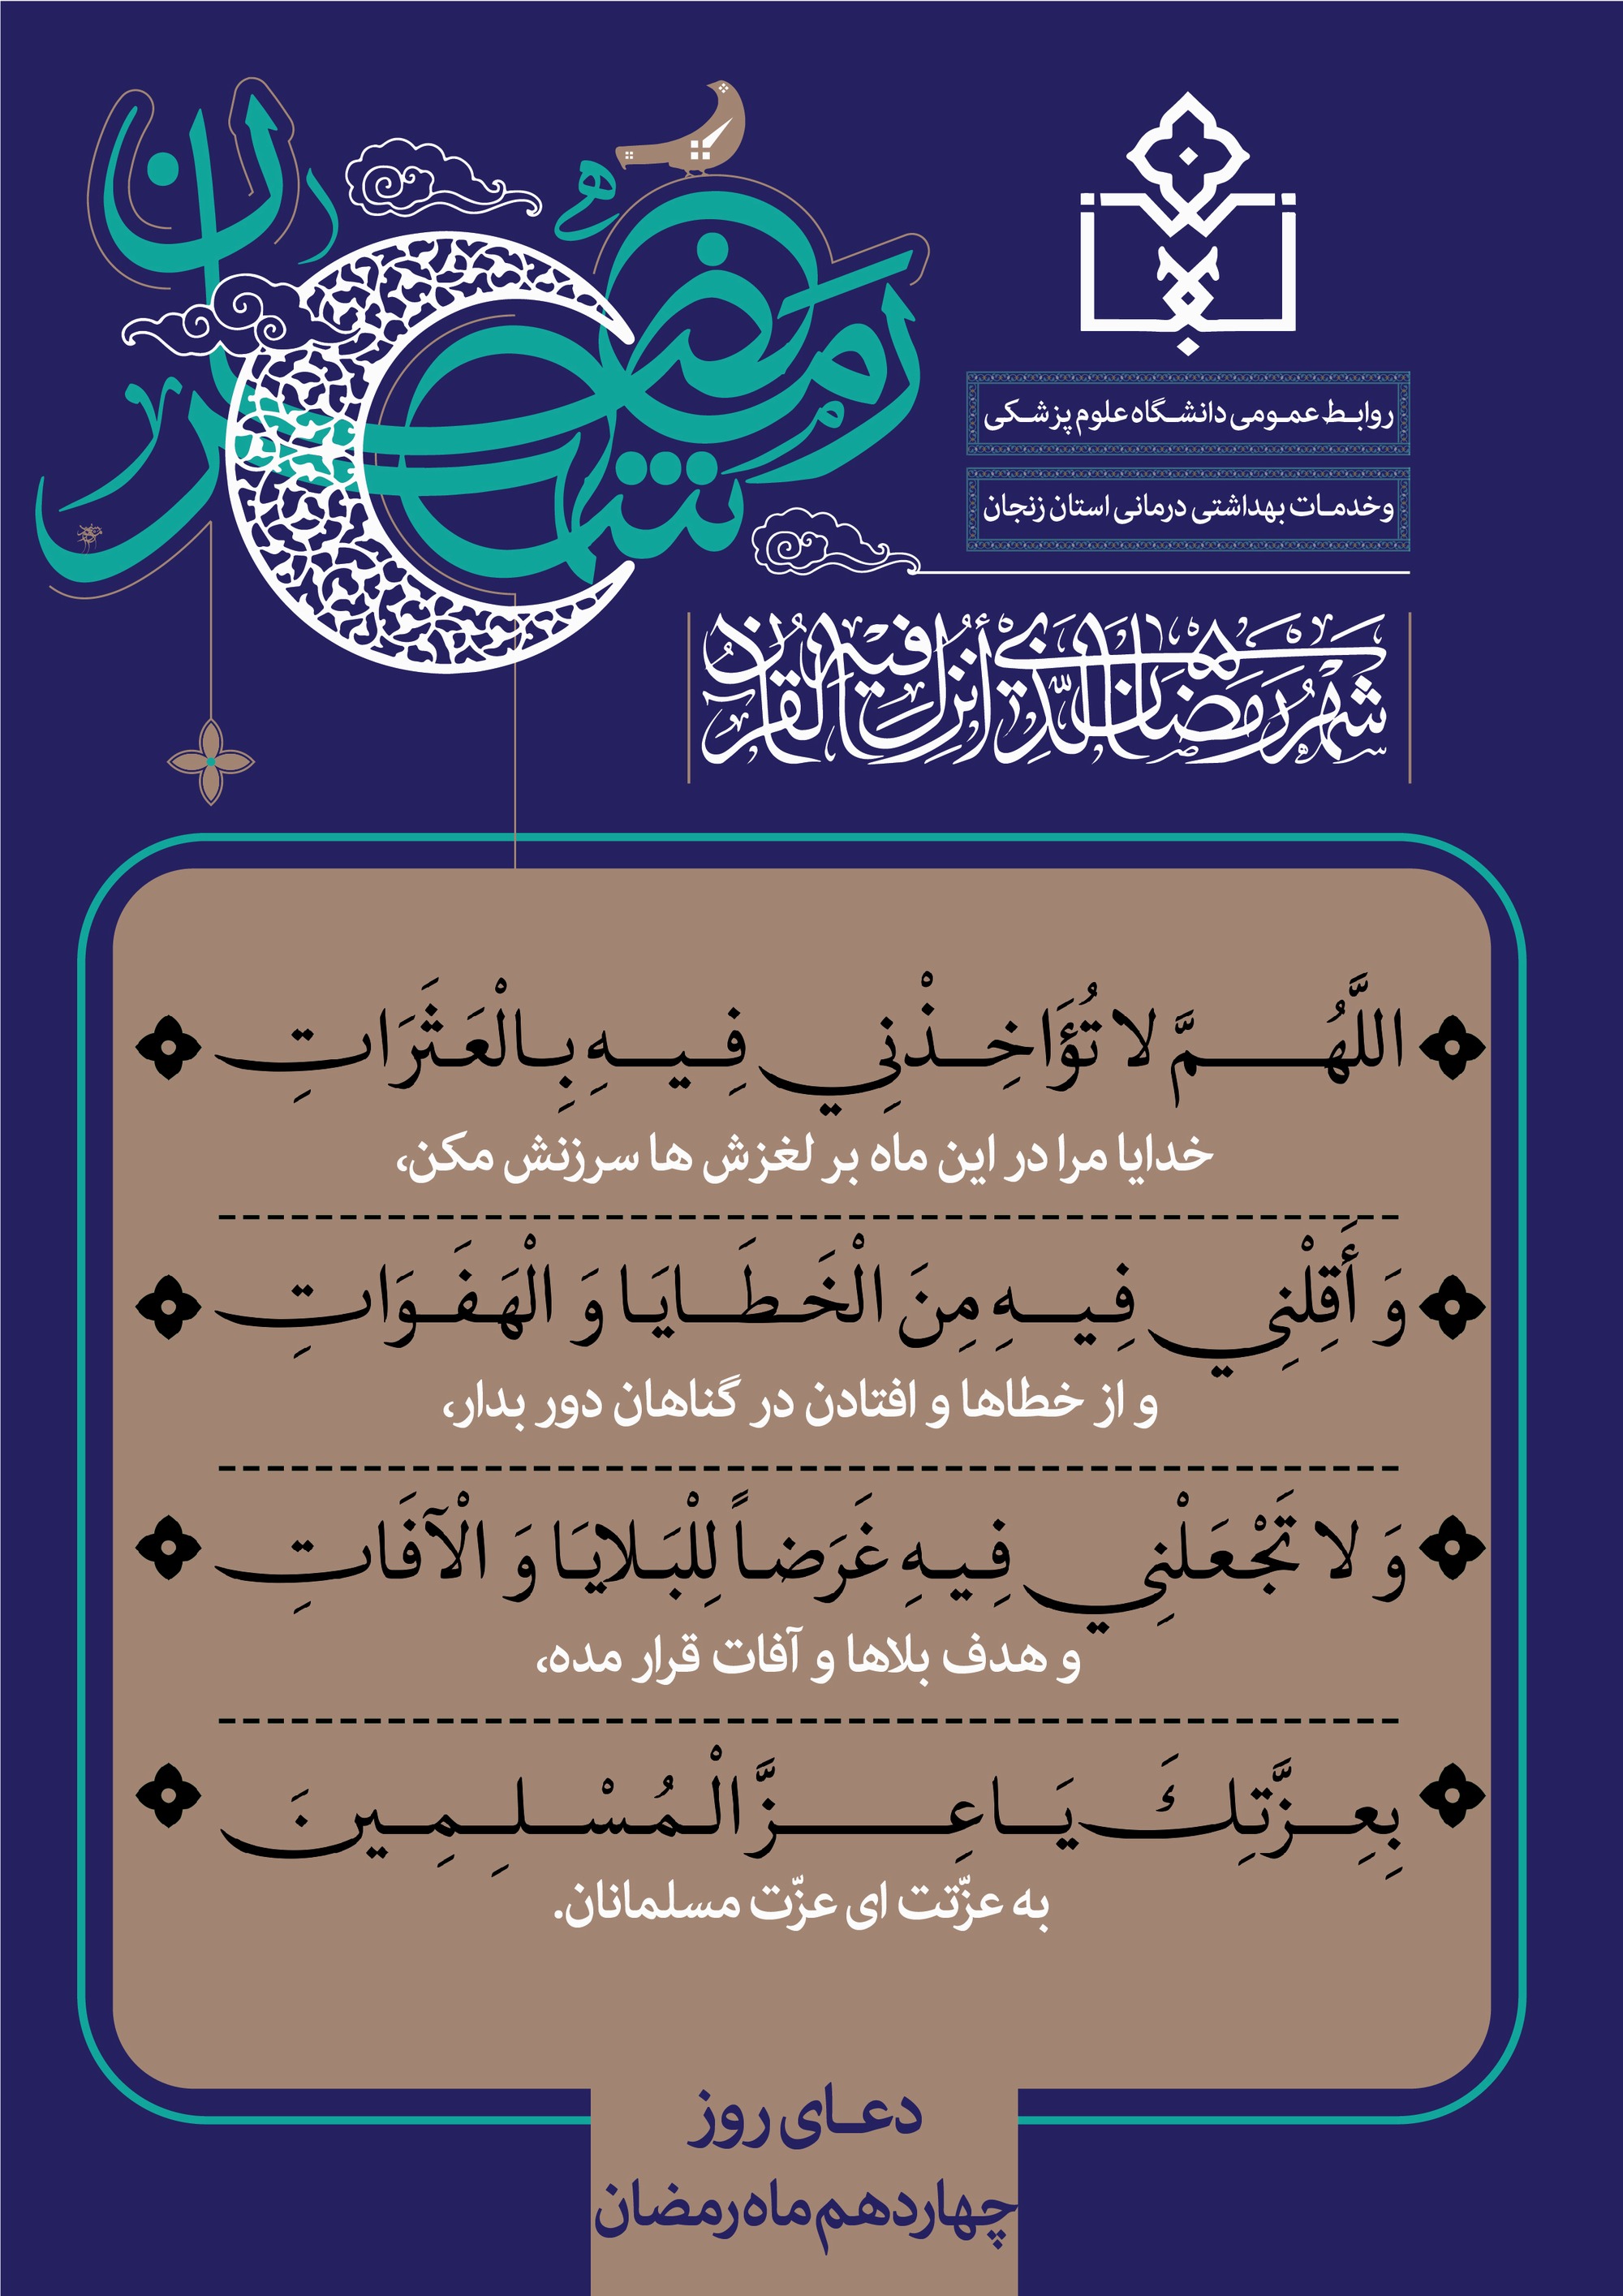 شهر رمضان
روابط عمومی دانشگاه علوم پزشکی
وخدمات بهداشتی درمانی استان زنجان
شهر رمضان الذی أنزل فیه القرآن
اللَّهُمَّ لا تُؤَاخِذْنِي فِيهِ بِالْعَثَرَاتِ
خدایا مرا در این ماه بر لغزش ها سرزنش مکن،
وَ أَقِلْنِي فِيهِ مِنَ الْخَطَايَا وَ الْهَفَوَاتِ
و از خطاها و افتادن در گناهان دور بدار،
وَ لا تَجْعَلْنِي فِيهِ غَرَضاً لِلْبَلايَا وَ الْآفَاتِ
و هدف بلاها و آفات قرار مده،
بِعِزَّتِكَ يَا عِزَّ الْمُسْلِمِينَ
به عزّتت ای عزّت مسلمانان.
دعای روز
چهاردهم ماه رمضان